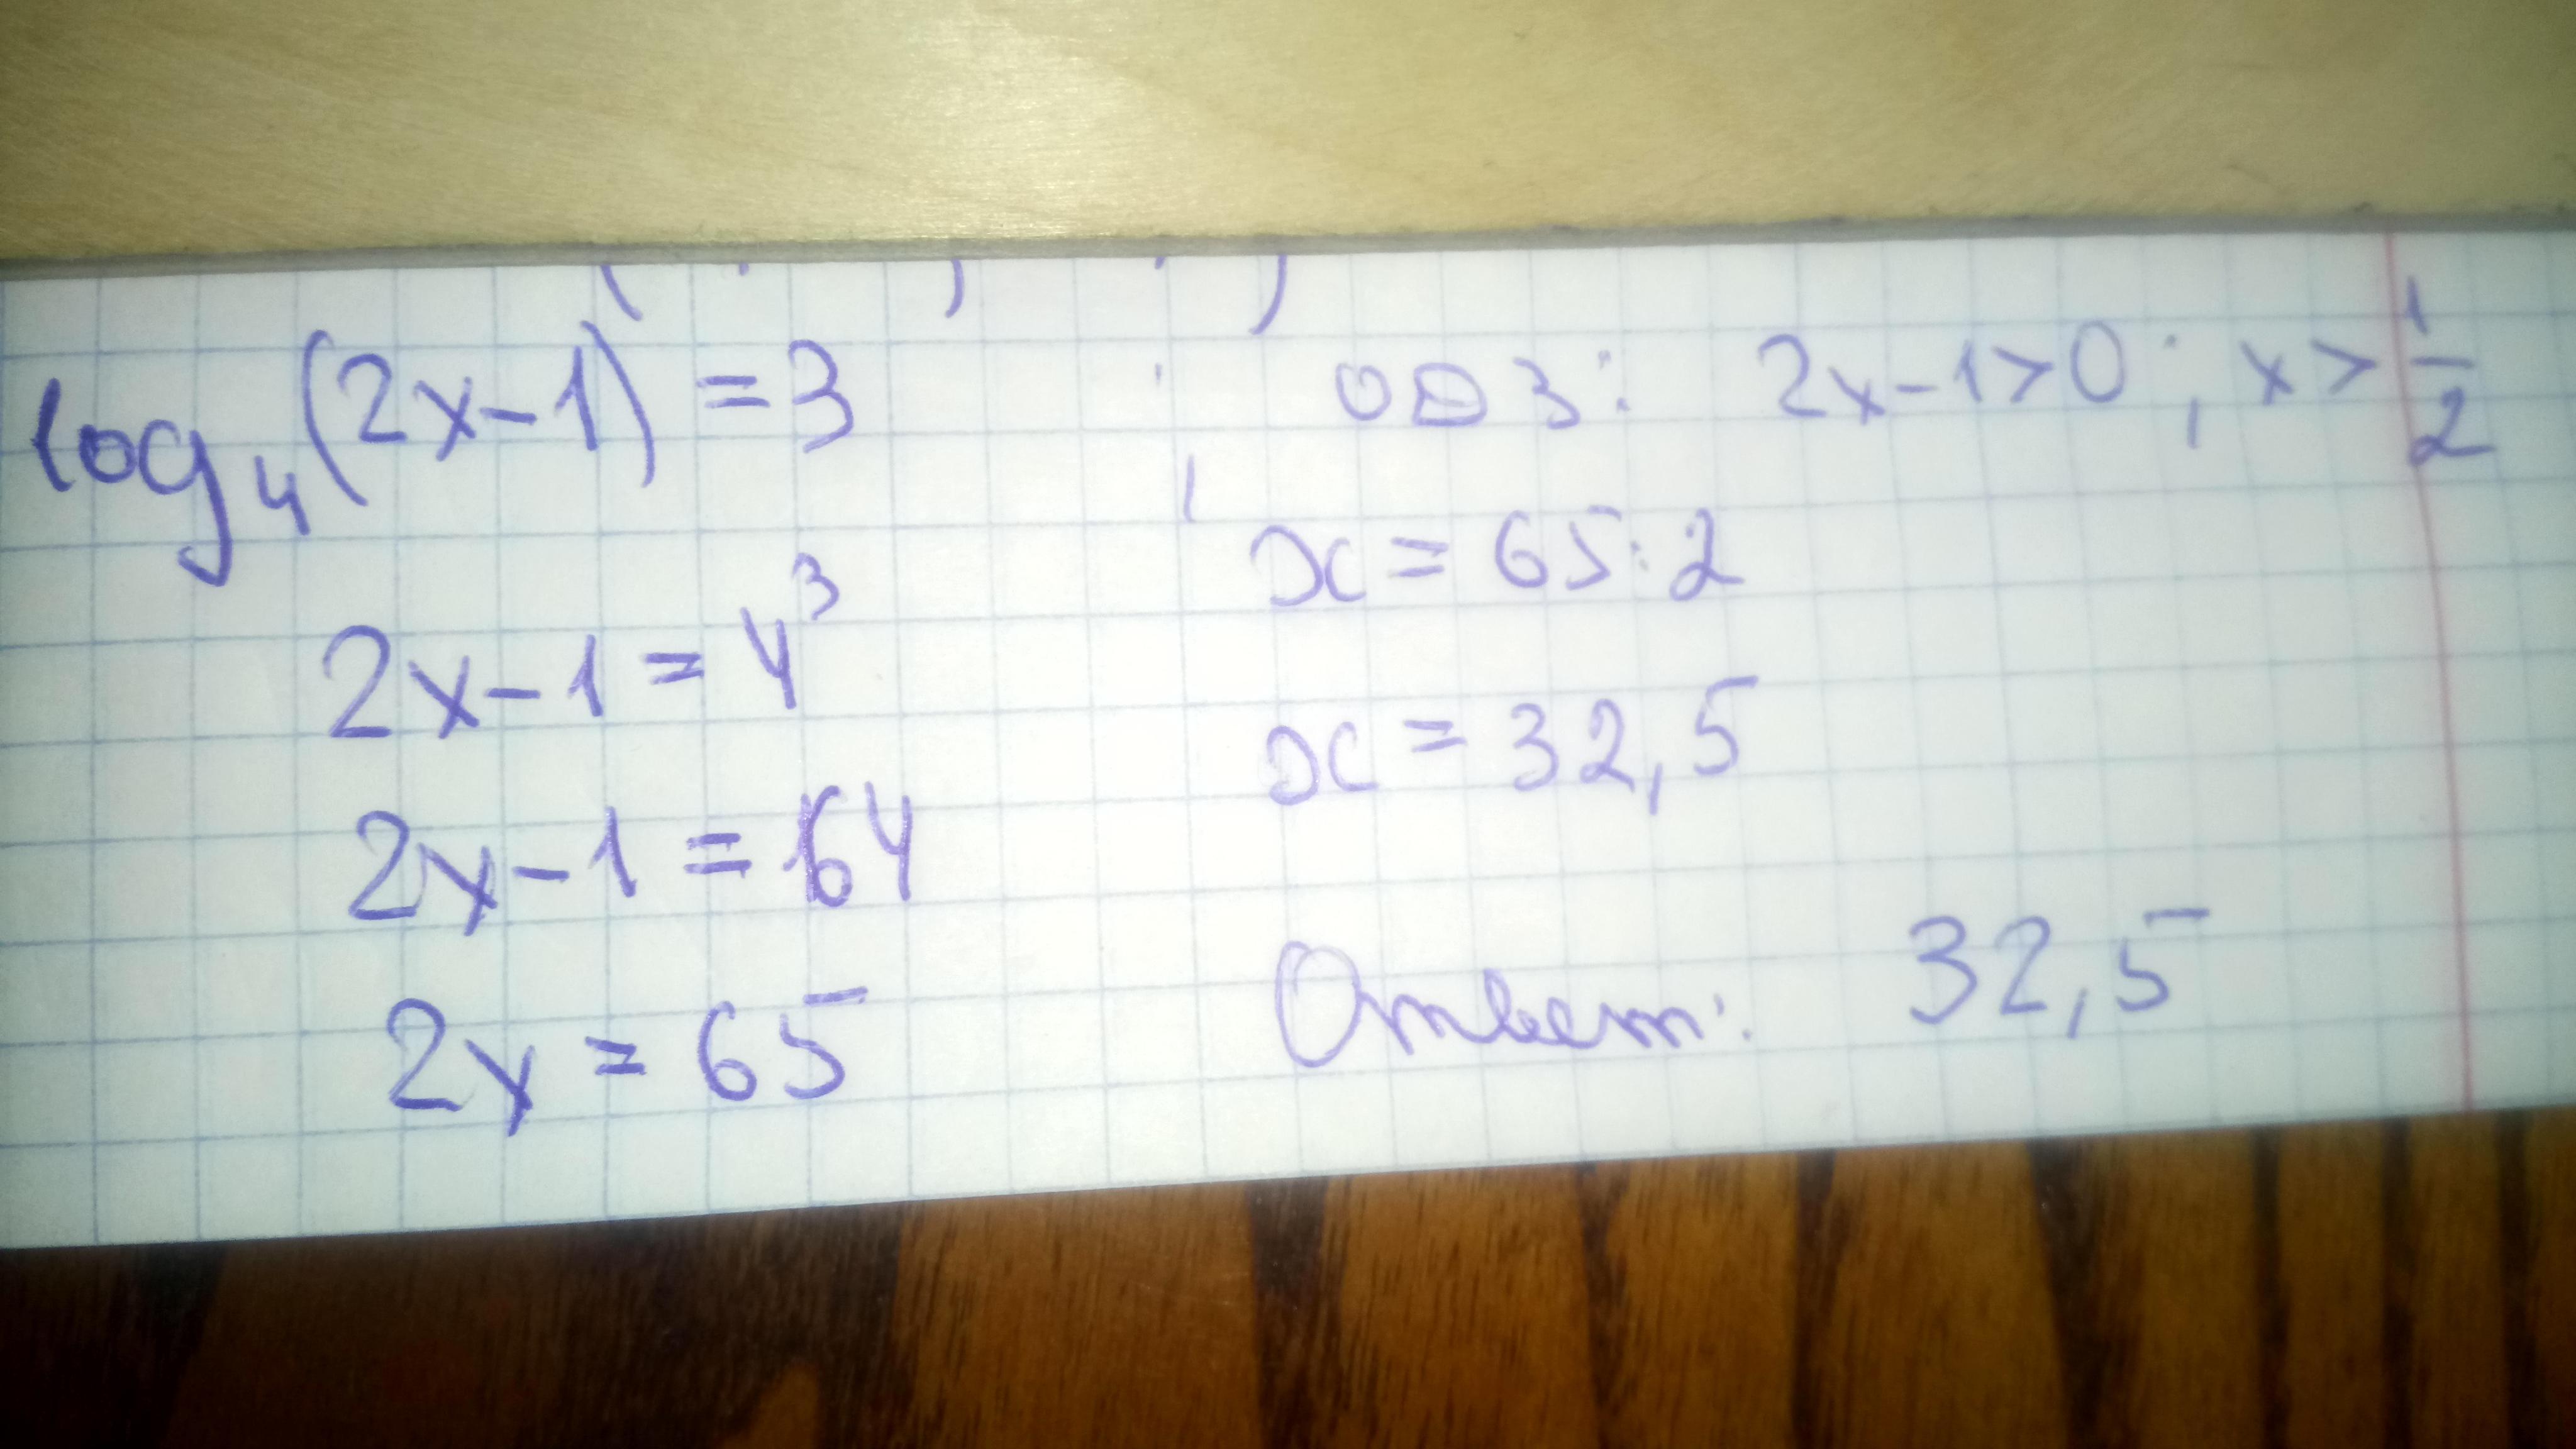 log₄(2x-1) = 3
2x-1 = 4³
2x-1 = 64
2x = 65
ОДЗ: 2x-1>0; x> 1/2
x = 65:2
x = 32,5
Ответ: 32,5